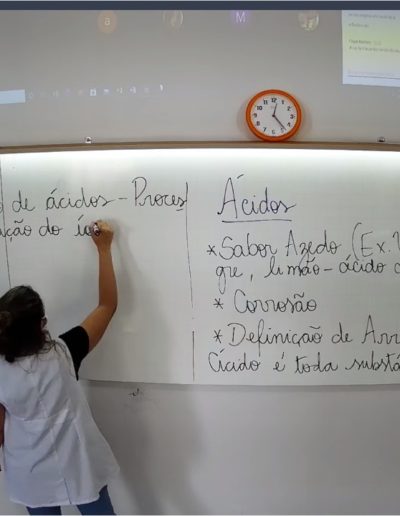 de ácidos - Proces
ução do íon
Ácidos
* Sabor Azedo (Ex. V
gre, limão - ácido c
* Corrosão
* Definição de Arr
Ácido é toda substâ